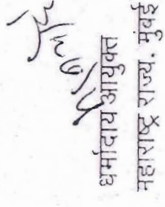 धर्मादाय आयुक्त
महाराष्ट्र राज्य. मुंबई